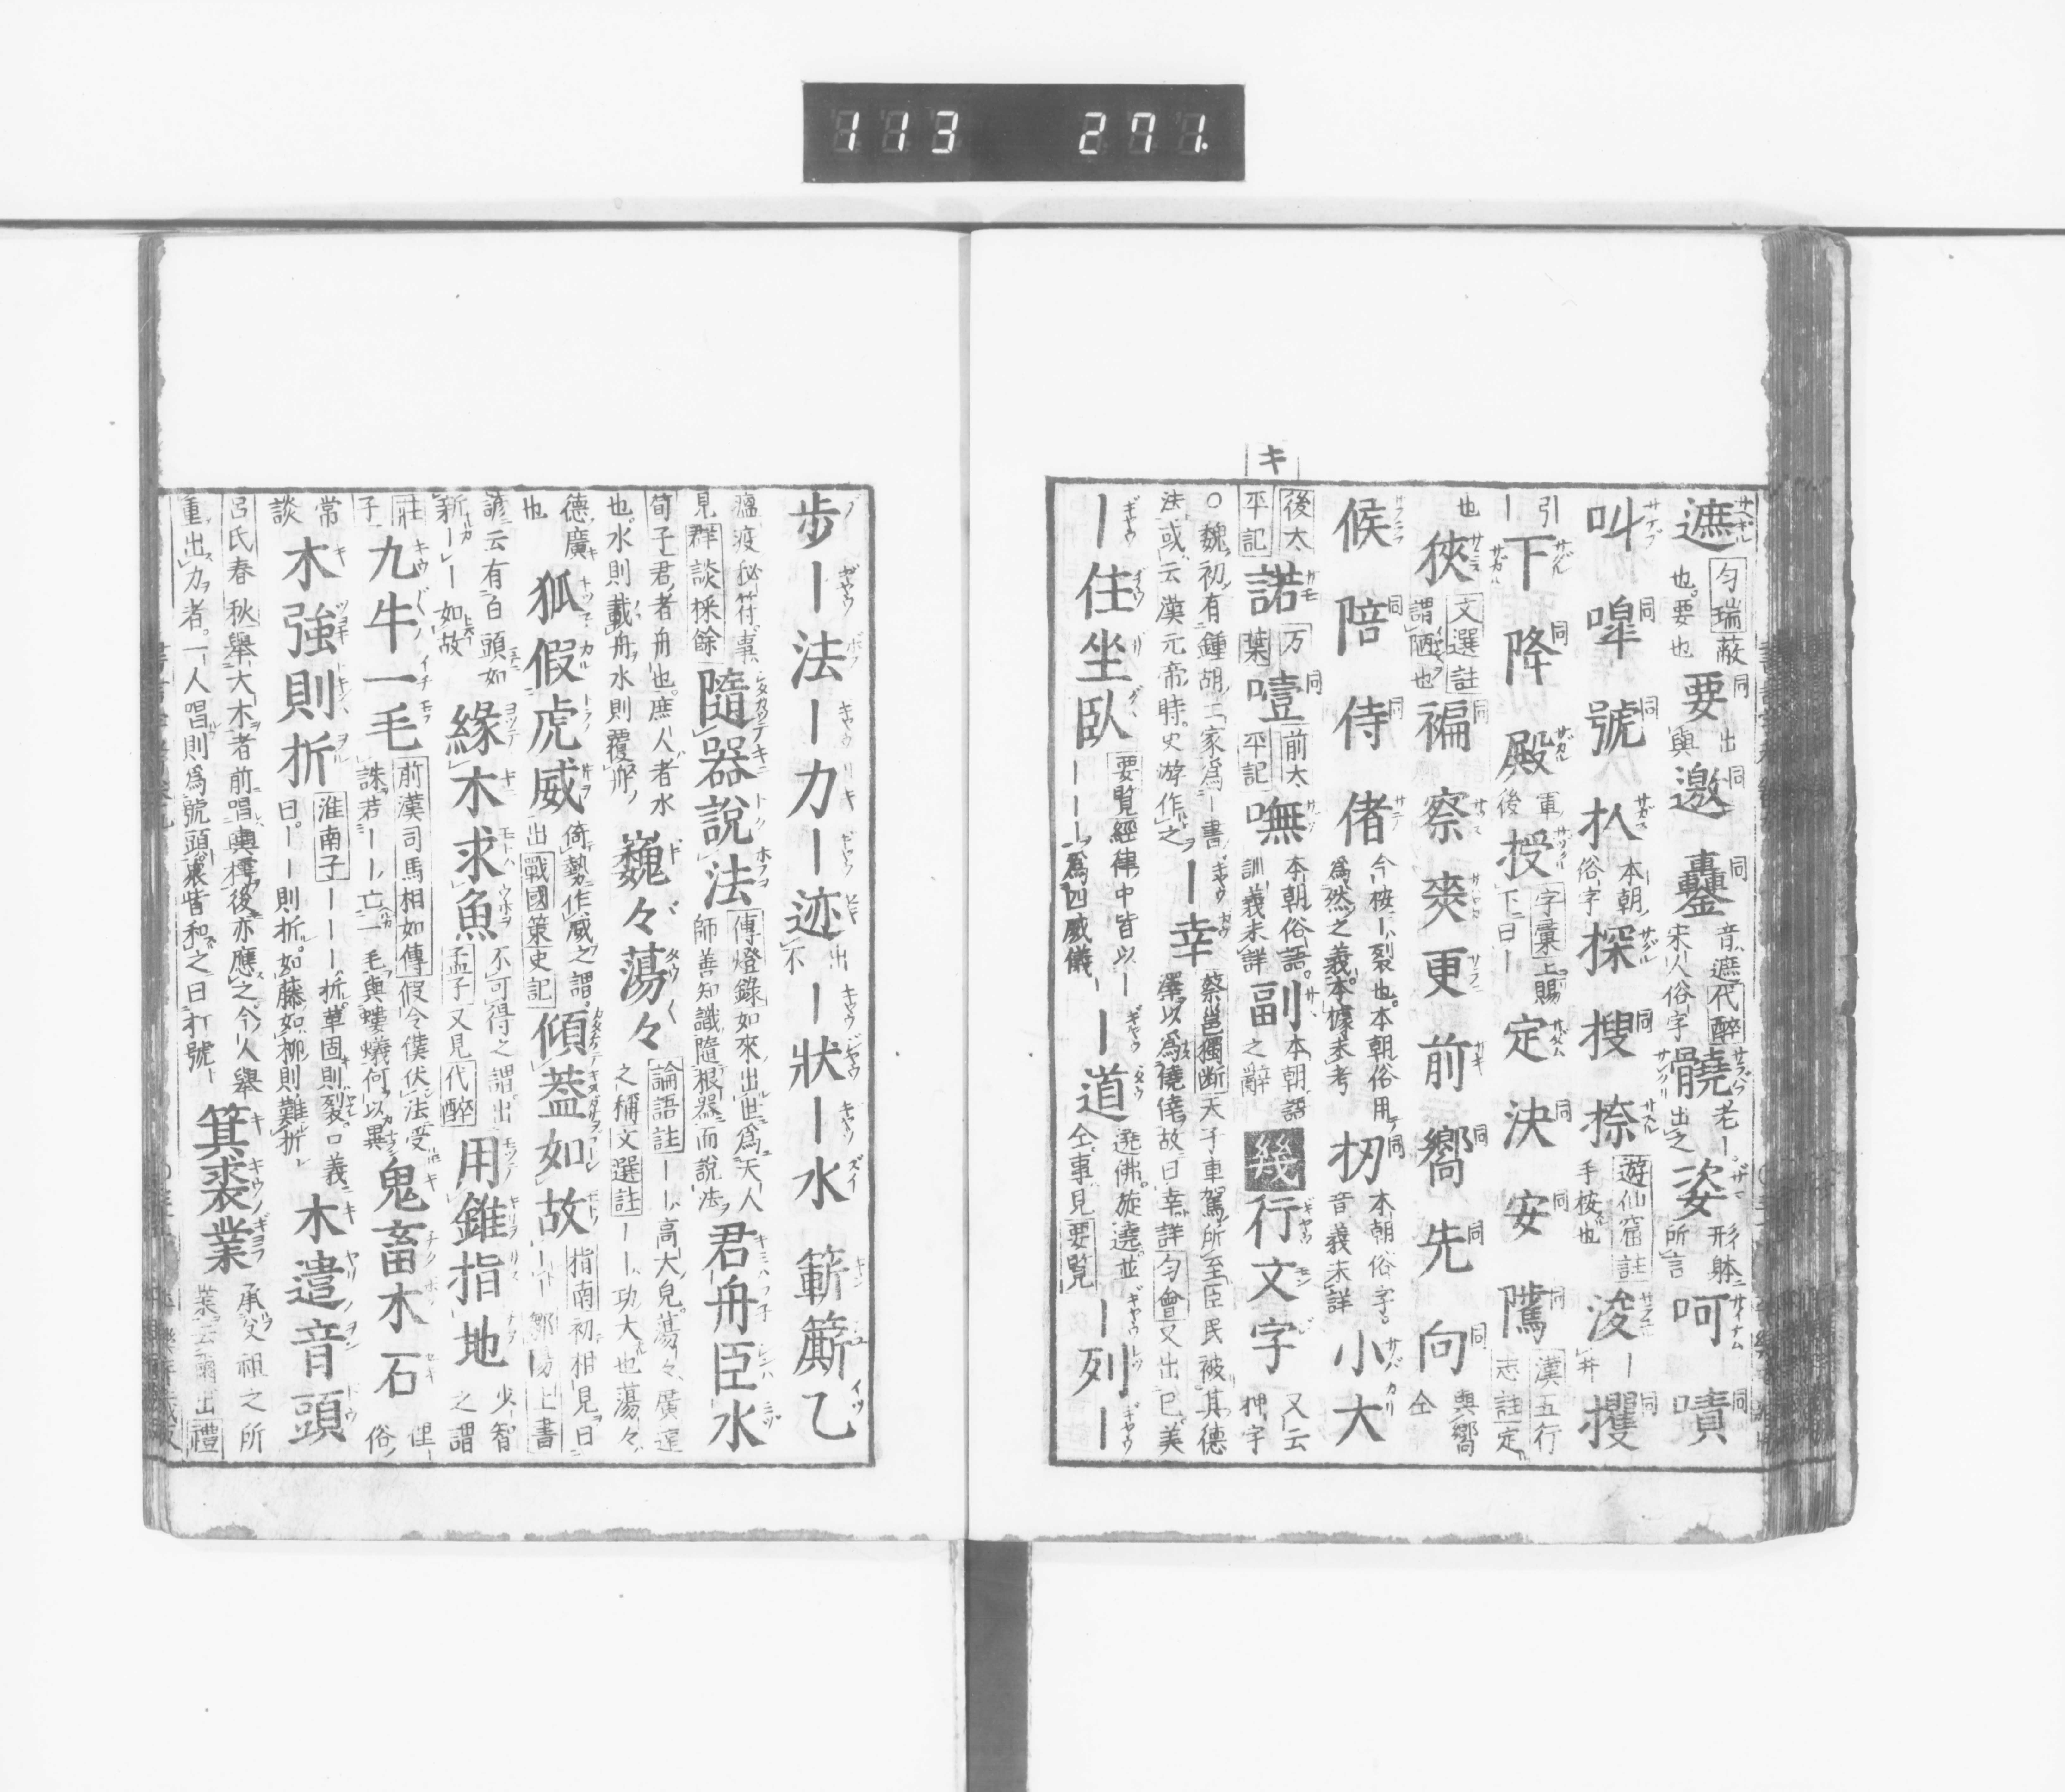 113 271.
キ
遮 匀瑞蔽也要也 要 出與 邀 轟 音遮代醉宋人俗字 髐 老ー出之 姿 形躰所言 呵 嘖
叫 嘷 號 扒 本朝俗字 探 搜 捺 遊仙窟註手桉也 浚 ー井 攫
引ー 下 降 殿 軍後 授 字彙上賜下曰ー 定 決 安 隲 漢五行志註定
也 狹 文選註謂陋也 褊 察 爽 更 前 嚮 先 向 與嚮仝
候 陪 侍 偖 今桉ー裂也本朝俗用爲然之義本據未考 扨 本朝俗字音義未詳 小大
後太平記 諾 万葉 噎 前太平記 嘸 本朝俗語訓義未詳 副 本朝語之辭 幾 行文字 又云押字
○魏初有鍾胡二家爲ー書法或云漢元帝時史游作之 ー幸 蔡邕獨断天子車駕所至臣民被其德澤以爲僥倖故曰幸詳匀會又出巳美
ー住坐臥 要覧經律中皆以ーーーー爲四威儀 ー道 遶佛旋遶並仝事見要覧 ー列ー
步ー法ー力ー迹 出不 ー狀ー水 簕簛乙
瘟疫秘符事見群談採餘 隨器說法 傳燈錄如來出世爲天人師善知識隨根器而說法 君舟臣水
荀子君者舟也庶人者水也水則載舟水則覆舟 巍々蕩々 論語註ーー高大皃蕩々廣遠之稱文選註ーー功大也蕩々
德廣也 狐假虎威 倚勢作威之謂出戰國策史記 傾葢如故 指南初相見曰ーー鄒陽上書
諺云有白頭如新ーー如故 緣木求魚 不可得之謂出孟子又見代醉 用錐指地 少智之謂
莊子 九牛一毛 前漢司馬相如傳假令僕伏法受誅若ーー亡一毛與螻蟻何以異 鬼畜木石 俚ー俗
常談 木強則折 淮南子ーーーー折革固則裂口義曰ーー則折如藤如柳則難折 木遣音頭
呂氏春秋擧大木者前唱輿樗後亦應之今人擧重出力者一人唱則爲號頭衆皆和之曰打號ー 箕裘業 承父祖之所業云爾出禮